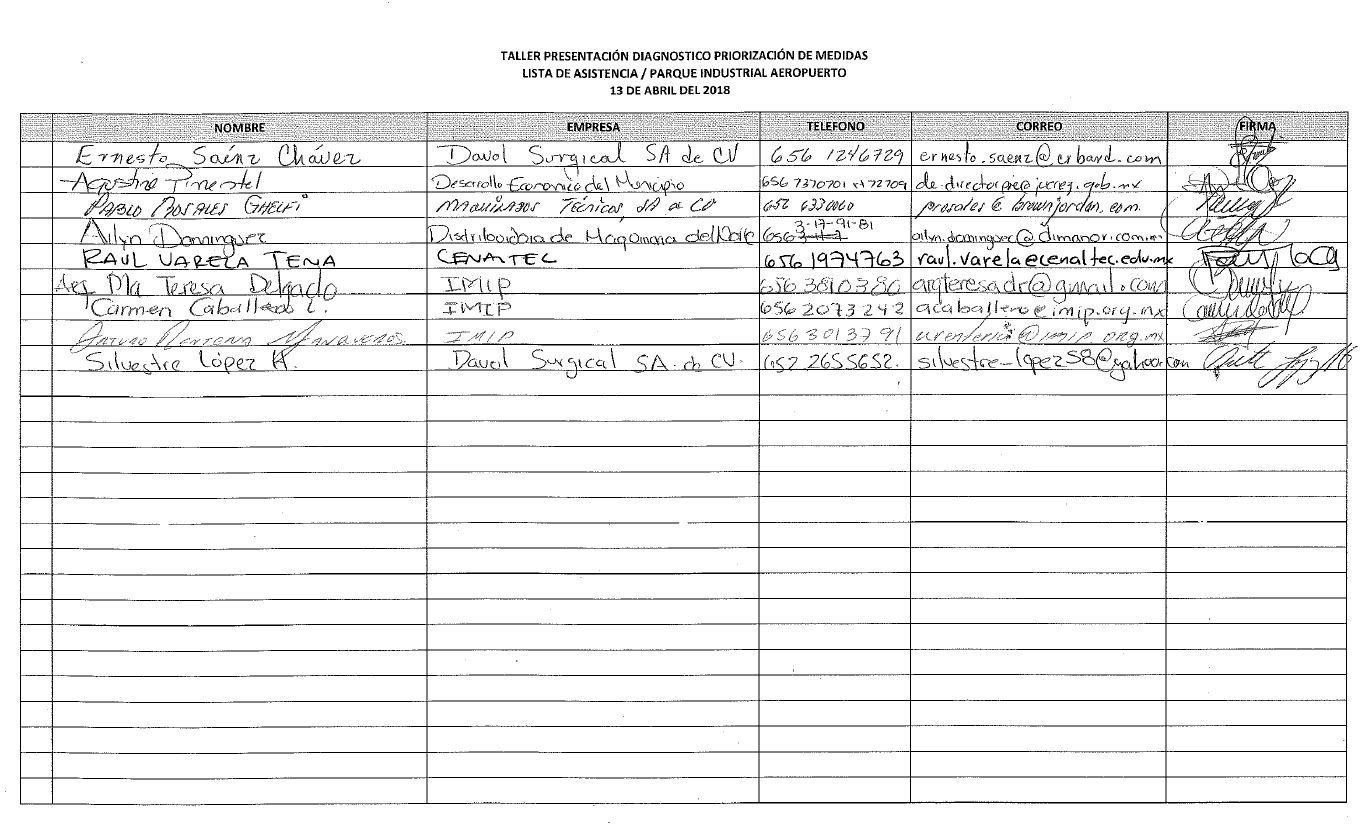 TALLER PRESENTACIÓN DIAGNOSTICO PRIORIZACIÓN DE MEDIDAS
LISTA DE ASISTENCIA / PARQUE INDUSTRIAL AEROPUERTO
13 DE ABRIL DEL 2018
NOMBRE EMPRESA TELEFONO CORREO FIRMA
Ernesto Saénz Chávez Davol Surgical SA de CV 656 1246729 ernesto.saenz@crbard.com
Pimentel Desarrollo Economico del Municipio 656 7370701
PABLO ROSALES GHELFI MAQUILADOS Técnicos, SA de CV 656 6330000 prosales@brownjordan.com.
Ailyn Dominguez Distribuidora de Maquinaria del Norte 656 3-17-91-81 ailyn.dominguez@dimanor.com.mx
RAUL VARELA TENA CENALTEC 656 1974763 raul.varela@cenaltec.edu.mx
Arq Ma Teresa Delgado IMIP 656 3810380 arqteresadr@gmail.com
Carmen Caballero L. IMIP 656 2073242 acaballero@imip.org.mx
Arturo IMIP 656 3013791 urenteria@imip.org.mx
Silvestre López H. Davol Surgical SA. de CV. 652 2655652. silvestre-lopez58@yahoo.com